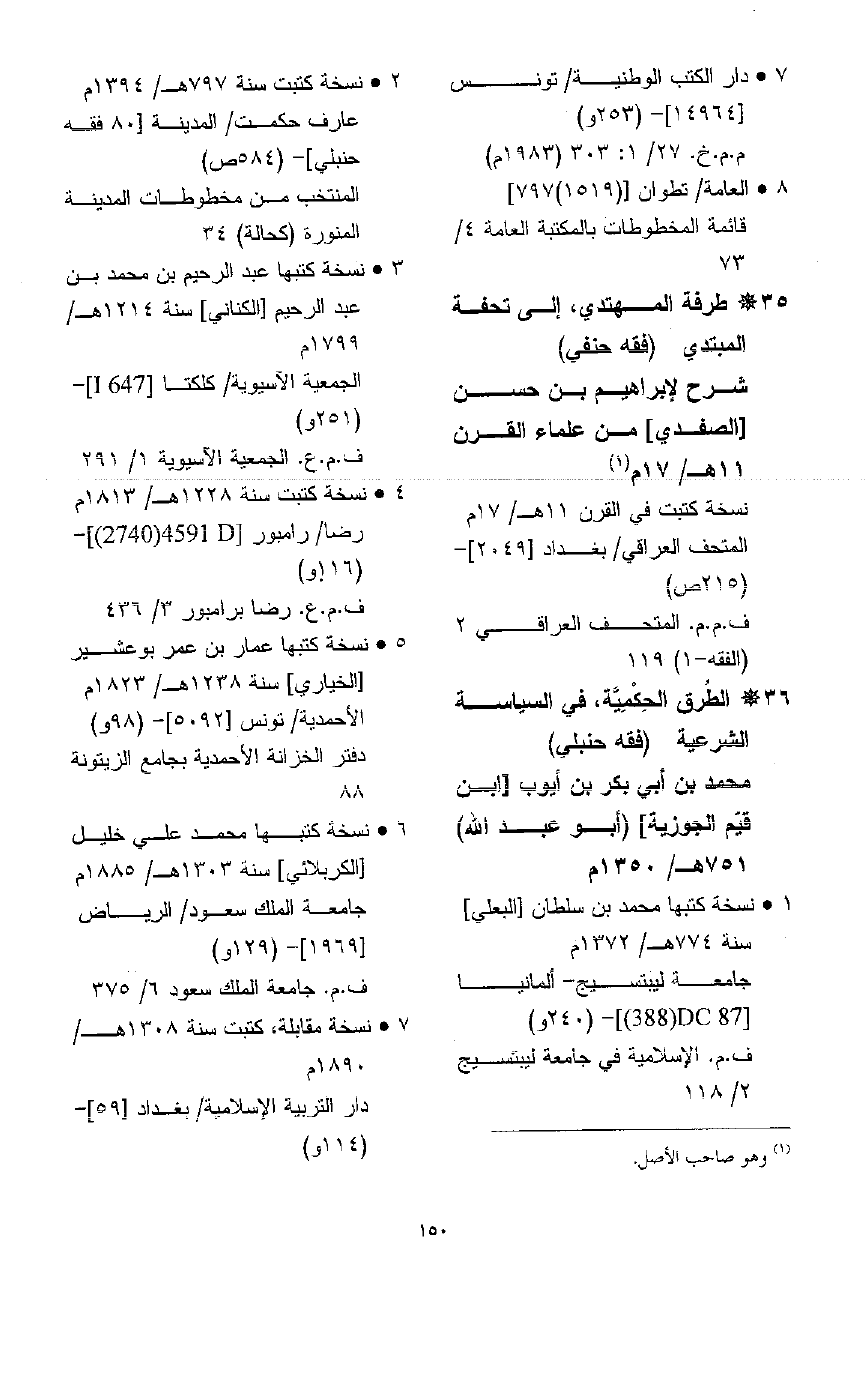 ٧ • دار الكتب الوطنية/ تونس
[١٤٩٦٤]- (٢٥٣و)
م.م.خ. ٢٧/ ١: ٣٠٣ (١٩٨٣م)
٨ • العامة/ تطوان [(١٥١٩)٧٩٧]
قائمة المخطوطات بالمكتبة العامة ٤/
٧٣
٣٥* طرفة المهتدي، إلى تحفة
المبتدي (فقه حنفي)
شرح لإبراهيم بن حسن
[الصفدي] من علماء القرن
١١هـ/ ١٧م(١)
نسخة كتبت في القرن ١١هـ/ ١٧م
المتحف العراقي/ بغداد [٢٠٤٩]-
(٢١٥ص)
ف.م.م. المتحف العراقي ٢
(الفقه-١) ١١٩
٣٦* الطُرق الحِكْمِيَّة، في السياسة
الشرعية (فقه حنبلي)
محمد بن أبي بكر بن أيوب [ابن
قيّم الجوزية] (أبو عبد الله)
٧٥١هـ/ ١٣٥٠م
١ • نسخة كتبها محمد بن سلطان [البعلي]
سنة ٧٧٤هـ/ ١٣٧٢م
جامعة ليبتسيج- ألمانيا
[(388)DC 87]- (٢٤٠و)
ف.م. الإسلامية في جامعة ليبتسيج
٢/ ١١٨
(١) وهو صاحب الأصل.
٢ • نسخة كتبت سنة ٧٩٧هـ/ ١٣٩٤م
عارف حكمت/ المدينة [٨٠ فقه
حنبلي]- (٥٨٤ص)
المنتخب من مخطوطات المدينة
المنورة (كحالة) ٣٤
٣ • نسخة كتبها عبد الرحيم بن محمد بن
عبد الرحيم [الكناني] سنة ١٢١٤هـ/
١٧٩٩م
الجمعية الآسيوية/ كلكتا [I 647]-
(٢٥١و)
ف.م.ع. الجمعية الآسيوية ١/ ٢٩١
٤ • نسخة كتبت سنة ١٢٢٨هـ/ ١٨١٣م
رضا/ رامبور [(2740)4591 D]-
(١١٦و)
ف.م.ع. رضا برامبور ٣/ ٤٣٦
٥ • نسخة كتبها عمار بن عمر بوعشير
[الخياري] سنة ١٢٣٨هـ/ ١٨٢٣م
الأحمدية/ تونس [٥٠٩٢]- (٩٨و)
دفتر الخزانة الأحمدية بجامع الزيتونة
٨٨
٦ • نسخة كتبها محمد علي خليل
[الكربلائي] سنة ١٣٠٣هـ/ ١٨٨٥م
جامعة الملك سعود/ الرياض
[١٩٦٩]- (١٢٩و)
ف.م. جامعة الملك سعود ٦/ ٣٧٥
٧ • نسخة مقابلة، كتبت سنة ١٣٠٨هـ/
١٨٩٠م
دار التربية الإسلامية/ بغداد [٥٩]-
(١١٤و)
١٥٠